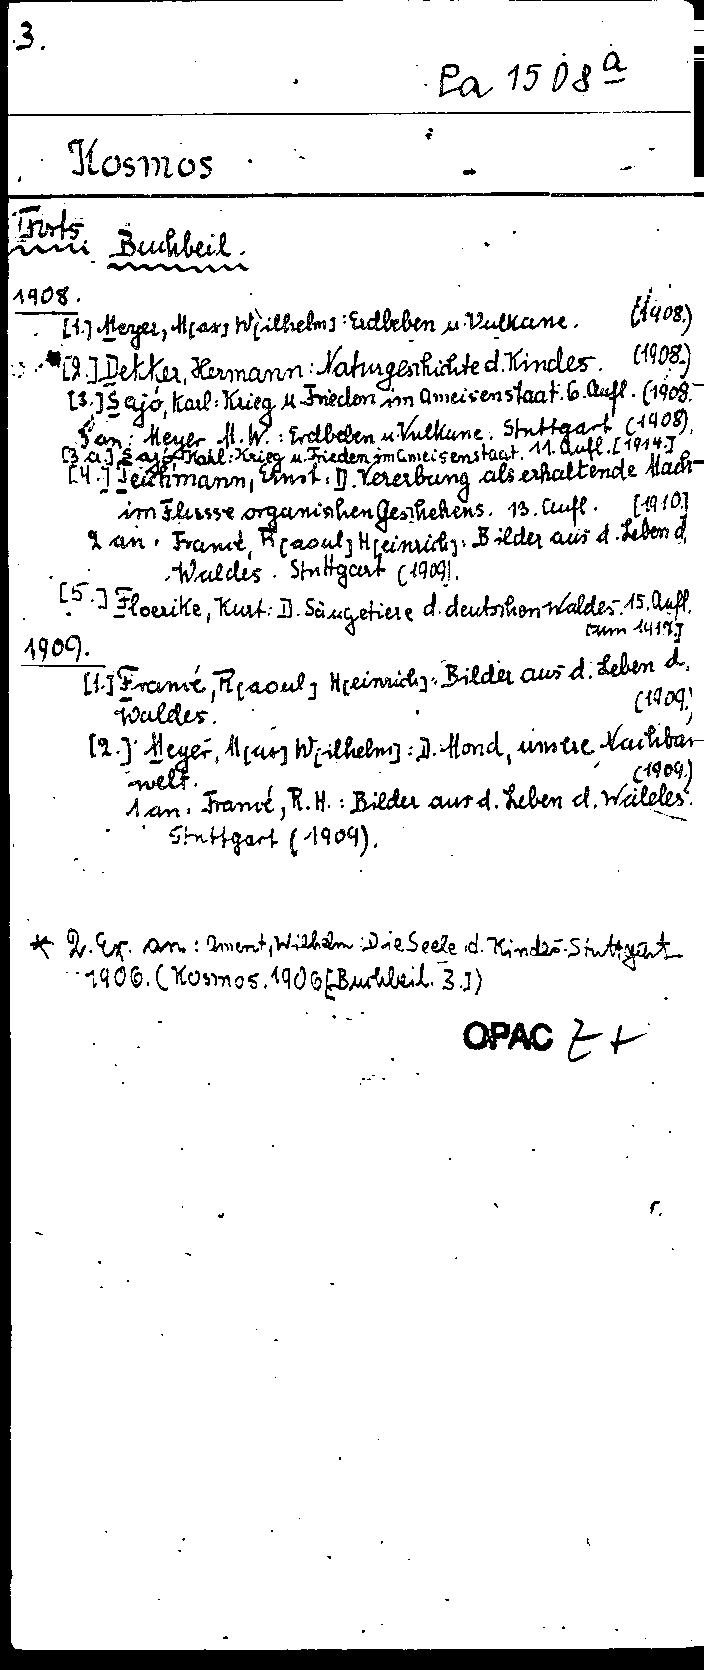 3.
La 1508 a
Kosmos
Forts.
Buchbeil.
1908.
[1.] Meyer, M[ax] W[ilhelm]: Erdbeben u. Vulkane. (1908.)
*[2.] Dekker, Hermann: Naturgeschichte d. Kindes. (1908.)
[3.] Sajó, Karl: Krieg u. Frieden im Ameisenstaat. 6. Aufl. (1908.
an: Meyer M. W.: Erdbeben u. Vulkane. Stuttgart (1908).
[3a.] Sajó, Karl: Krieg u. Frieden im Ameisenstaat. 11. Aufl. [1914.]
[4.] Teichmann, Ernst: D. Vererbung als erhaltende Mach-
im Flusse organischen Geschehens. 13. Aufl. [1910.]
2 an: Francé, R[aoul] H[einrich]: Bilder aus d. Leben d.
Waldes. Stuttgart (1909).
[5.] Floericke, Kurt: D. Säugetiere d. deutschen Waldes. 15. Aufl.
[um 1917.]
1909.
[1.] Francé, R[aoul] H[einrich]: Bilder aus d. Leben d.
Waldes. (1909.)
[2.] Meyer, M[ax] W[ilhelm]: D. Mond, unsere Nachbar
welt. (1909.)
1 an: Francé, R. H.: Bilder aus d. Leben d. Waldes.
Stuttgart (1909).
* 2. Ex. an: Ament, Wilhelm: Die Seele d. Kindes. Stuttgart
1906. (Kosmos. 1906 [Buchbeil. 3.])
OPAC Z+